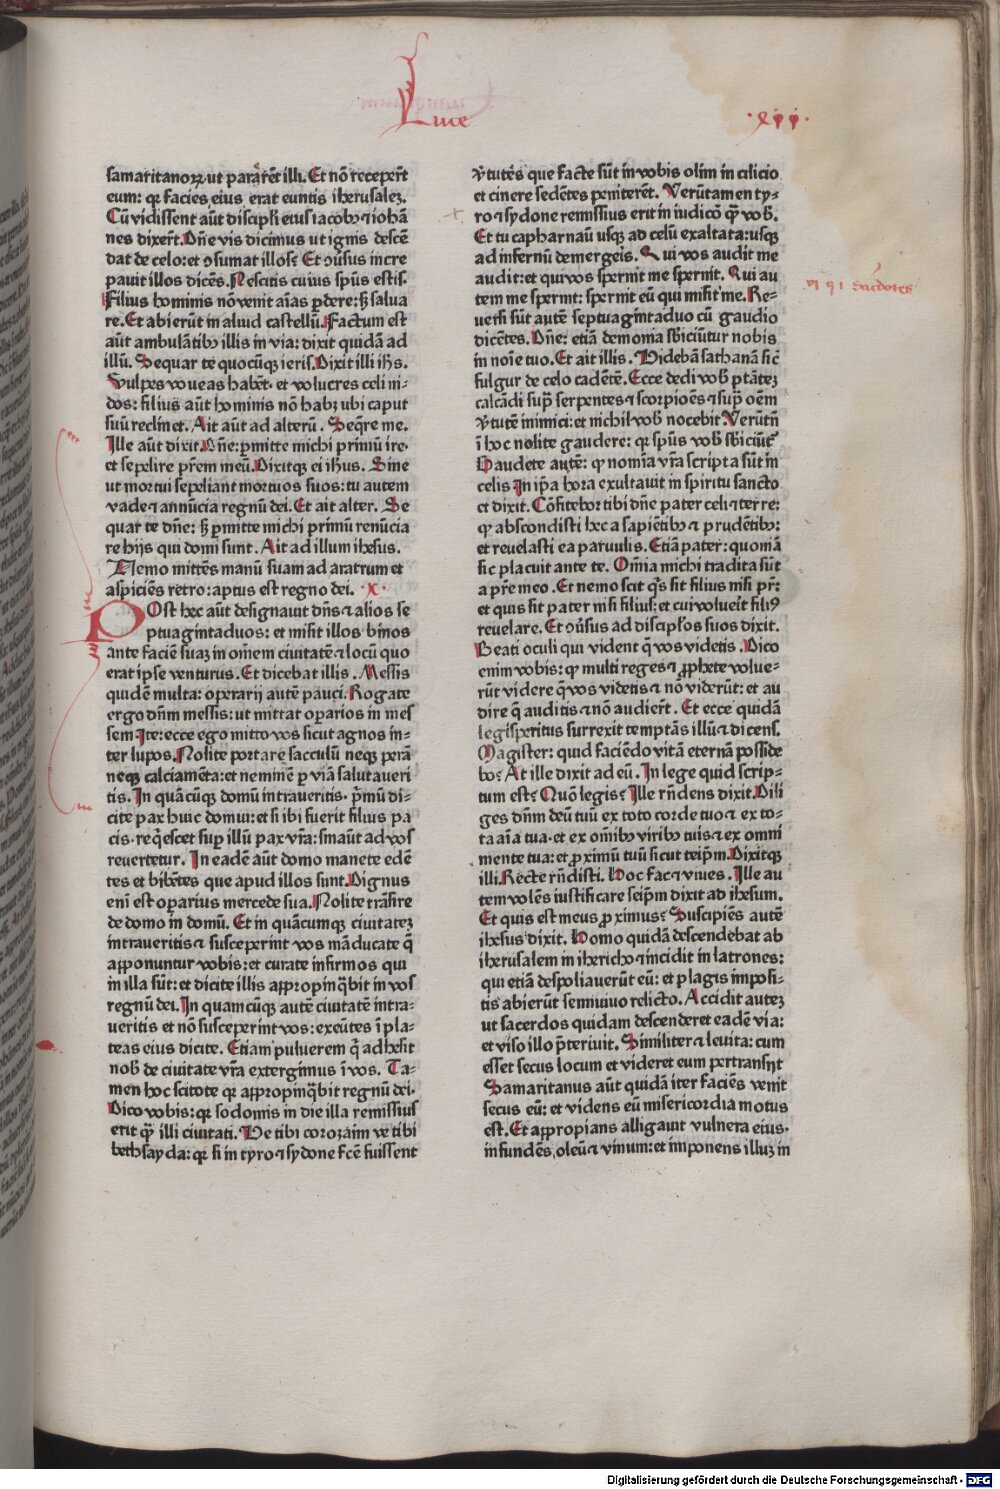 Luce
·xii·
samaritanoꝝ ut pararēt illi. Et nō receperūt
eum: qꝛ facies eius erat euntis iherusalez.
Cū vidissent aūt discipli eius iacobꝰ ⁊ iohā
nes dixerūt. Dn̄e vis dicimus ut ignis descē
dat de celo: et ꝯsumat illos? Et ꝯūsus incre
pauit illos dicēs. Nescitis cuius spūs estis.
Filius hominis nō venit aīas ꝑdere: sꝫ salua
re. Et abierūt in aliud castellū. Factum est
aūt ambulātibꝰ illis in via: dixit quidā ad
illū. Sequar te quocūqꝫ ieris. Dixit illi ihs.
Vulpes voueas habēt· et volucres celi ni-
dos: filius aūt hominis nō habꝫ ubi caput
suū reclinet. Ait aūt ad alterū. Seqre me.
Ille aūt dixit. Dn̄e: ꝑmitte michi primū ire·
et sepelire prēm meū. Dixitqꝫ ei ihus. Sine
ut mortui sepeliant mortuos suos: tu autem
vade ⁊ annūcia regnū dei. Et ait alter. Se
quar te dn̄e: sꝫ ꝑmitte michi primū renūcia
re hijs qui domi sunt. Ait ad illum ihesus.
Nemo mittēs manū suam ad aratrum et
aspiciēs retro: aptus est regno dei. ·x·
POst hec aūt designauit dn̄s ⁊ alios se
ptuagintaduos: et misit illos binos
ante faciē suaꝫ in om̄em ciuitatē ⁊ locū quo
erat ipse venturus. Et dicebat illis. Messis
quidē multa: operarij autē pauci. Rogate
ergo dn̄m messis: ut mittat oꝑarios in mes
sem. Ite: ecce ego mitto vos sicut agnos in-
ter lupos. Nolite portare sacculū neqꝫ perā
neqꝫ calciamēta: et neminē ꝑ viā salutaueri
tis. In quācūqꝫ domū intraueritis· pͥmū di-
cite pax huic domui: et si ibi fuerit filius pa
cis· reqͥescet suꝑ illū pax vr̄a: sinaūt ad vos
reuertetur. In eadē aūt domo manete edē
tes et bibētes que apud illos sunt. Dignus
enī est oꝑarius mercede sua. Nolite trāsire
de domo in domū. Et in quācumqꝫ ciuitatez
intraueritis ⁊ susceperint vos māducate q̄
apponuntur vobis: et curate infirmos qui
in illa sūt: et dicite illis appropinq̄bit in vos
regnū dei. In quamcūqꝫ autē ciuitatē intra-
ueritis et nō susceperint vos: exeūtes ī pla-
teas eius dicite. Etiam puluerem q̄ adhesit
nob̄ de ciuitate vr̄a extergimus ī vos. Ta-
men hoc scitote qꝛ appropinq̄bit regnū dei.
Dico vobis: qꝛ sodomis in die illa remissius
erit qꝫ̄ illi ciuitati. Ve tibi corozaim ve tibi
bethsayda: qꝛ si in tyro ⁊ sydone fcē fuissent
v̄tutes que facte sūt in vobis olim in cilicio
et cinere sedētes peniterēt. Verūtamen ty-
ro ⁊ sydone remissius erit in iudicō qꝫ̄ vob̄.
Et tu capharnaū usqꝫ ad celū exaltata: usqꝫ
ad infernū demergeis. Qui vos audit me
audit: et qui vos spernit me spernit. Qui au
tem me spernit: spernit eū qui misit me. Re-
uersi sūt autē septuagintaduo cū gaudio
dicētes. Dn̄e: etiā demonia sbiciūtur nobis
in noīe tuo. Et ait illis. Videbā sathanā sic̄
fulgur de celo cadētē. Ecce dedi vob̄ ptātez
calcādi suꝑ serpentes ⁊ scorpiōes ⁊ suꝑ oēm
v̄tutē inimici: et nichil vob̄ nocebit. Verūtn̄
ī hoc nolite gaudere: qꝛ spūs vob̄ sbiciūt᷑
Gaudete autē: qꝫ nomīa vr̄a scripta sūt in
celis In ip̄a hora exultauit in spiritu sancto
et dixit. Cōfiteor tibi dn̄e pater celi ⁊ terre:
qꝫ abscondisti hec a sapiētibꝰ ⁊ prudētibꝰ:
et reuelasti ea paruulis. Etiā pater: quomā
sic placuit ante te. Om̄ia michi tradita sūt
a pr̄e meo. Et nemo scit qͥs sit filius nisi pr̄:
et quis sit pater nisi filius: et cui voluerit filiꝰ
reuelare. Et ꝯūsus ad disciplos suos dixit.
Beati oculi qui vident q̄ vos videtis. Dico
enim vobis: qꝫ multi reges ⁊ ꝓphete volue-
rūt videre q̄ vos videtis ⁊ nō viderūt: et au
dire q̄ auditis ⁊ nō audierūt. Et ecce quidā
legisperitus surrexit temptās illū ⁊ dicens.
Magister: quid faciēdo vitā eternā posside
bo? At ille dixit ad eū. In lege quid scrip-
tum est? Quō legis? Ille rn̄dens dixit. Dili
ges dn̄m deū tuū ex toto corde tuo ⁊ ex to-
ta aīa tua· et ex om̄ibꝰ viribꝰ tuis ⁊ ex omni
mente tua: et ꝓximū tuū sicut teip̄m. Dixitqꝫ
illi. Recte rn̄disti. Hoc fac ⁊ viues. Ille au
tem volēs iustificare seip̄m dixit ad ihesum.
Et quis est meus proximus? Suscipiēs autē
ihesus dixit. Homo quidā descendebat ab
iherusalem in ihericho ⁊ incidit in latrones:
qui etiā despoliauerūt eū: et plagis imposi-
tis abierūt semiuiuo relicto. Accidit autez
ut sacerdos quidam descenderet eadē via:
et viso illo p̄teriuit. Similiter ⁊ leuita: cum
esset secus locum et videret eum pertransijt
Samaritanus aūt quidā iter faciēs venit
secus eū: et videns eū misericordia motus
est. Et appropians alligauit vulnera eius·
infundēs oleū ⁊ vinum: et imponens illuꝫ in
Digitalisierung gefördert durch die Deutsche Forschungsgemeinschaft - DFG